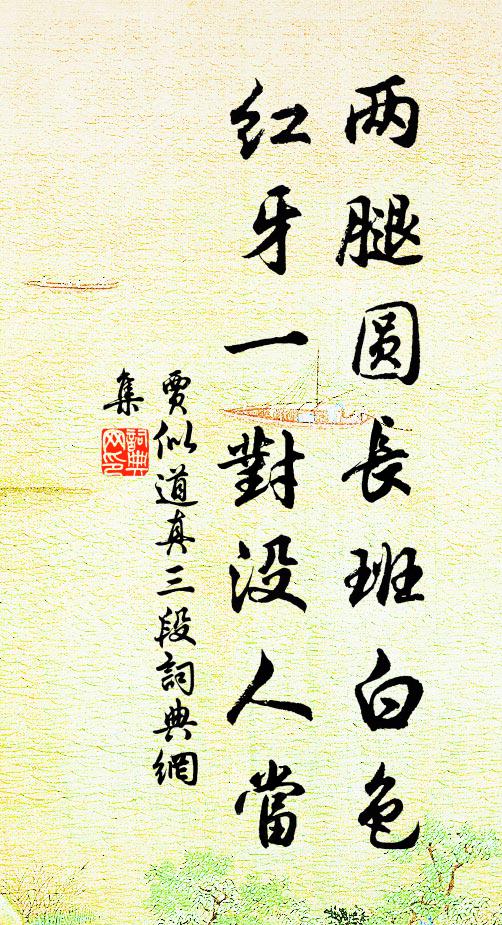 两腿圓長班白色
红牙一對没人當
賈似道真三段詞典網
集
詞典
网印